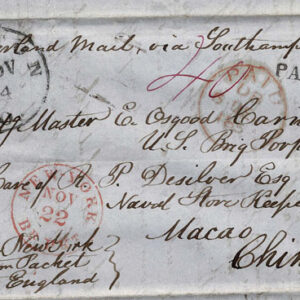 erland Mail, via Southamp
OV
N
4
40
PAID
PA
g Master E. Osgood Carn
U.S. Brig Porp
Care of A. P. Desilver Esq
Naval Store Keepe
Macao
Chin
NEW-YORK
NOV
22
New York
m Packet
England